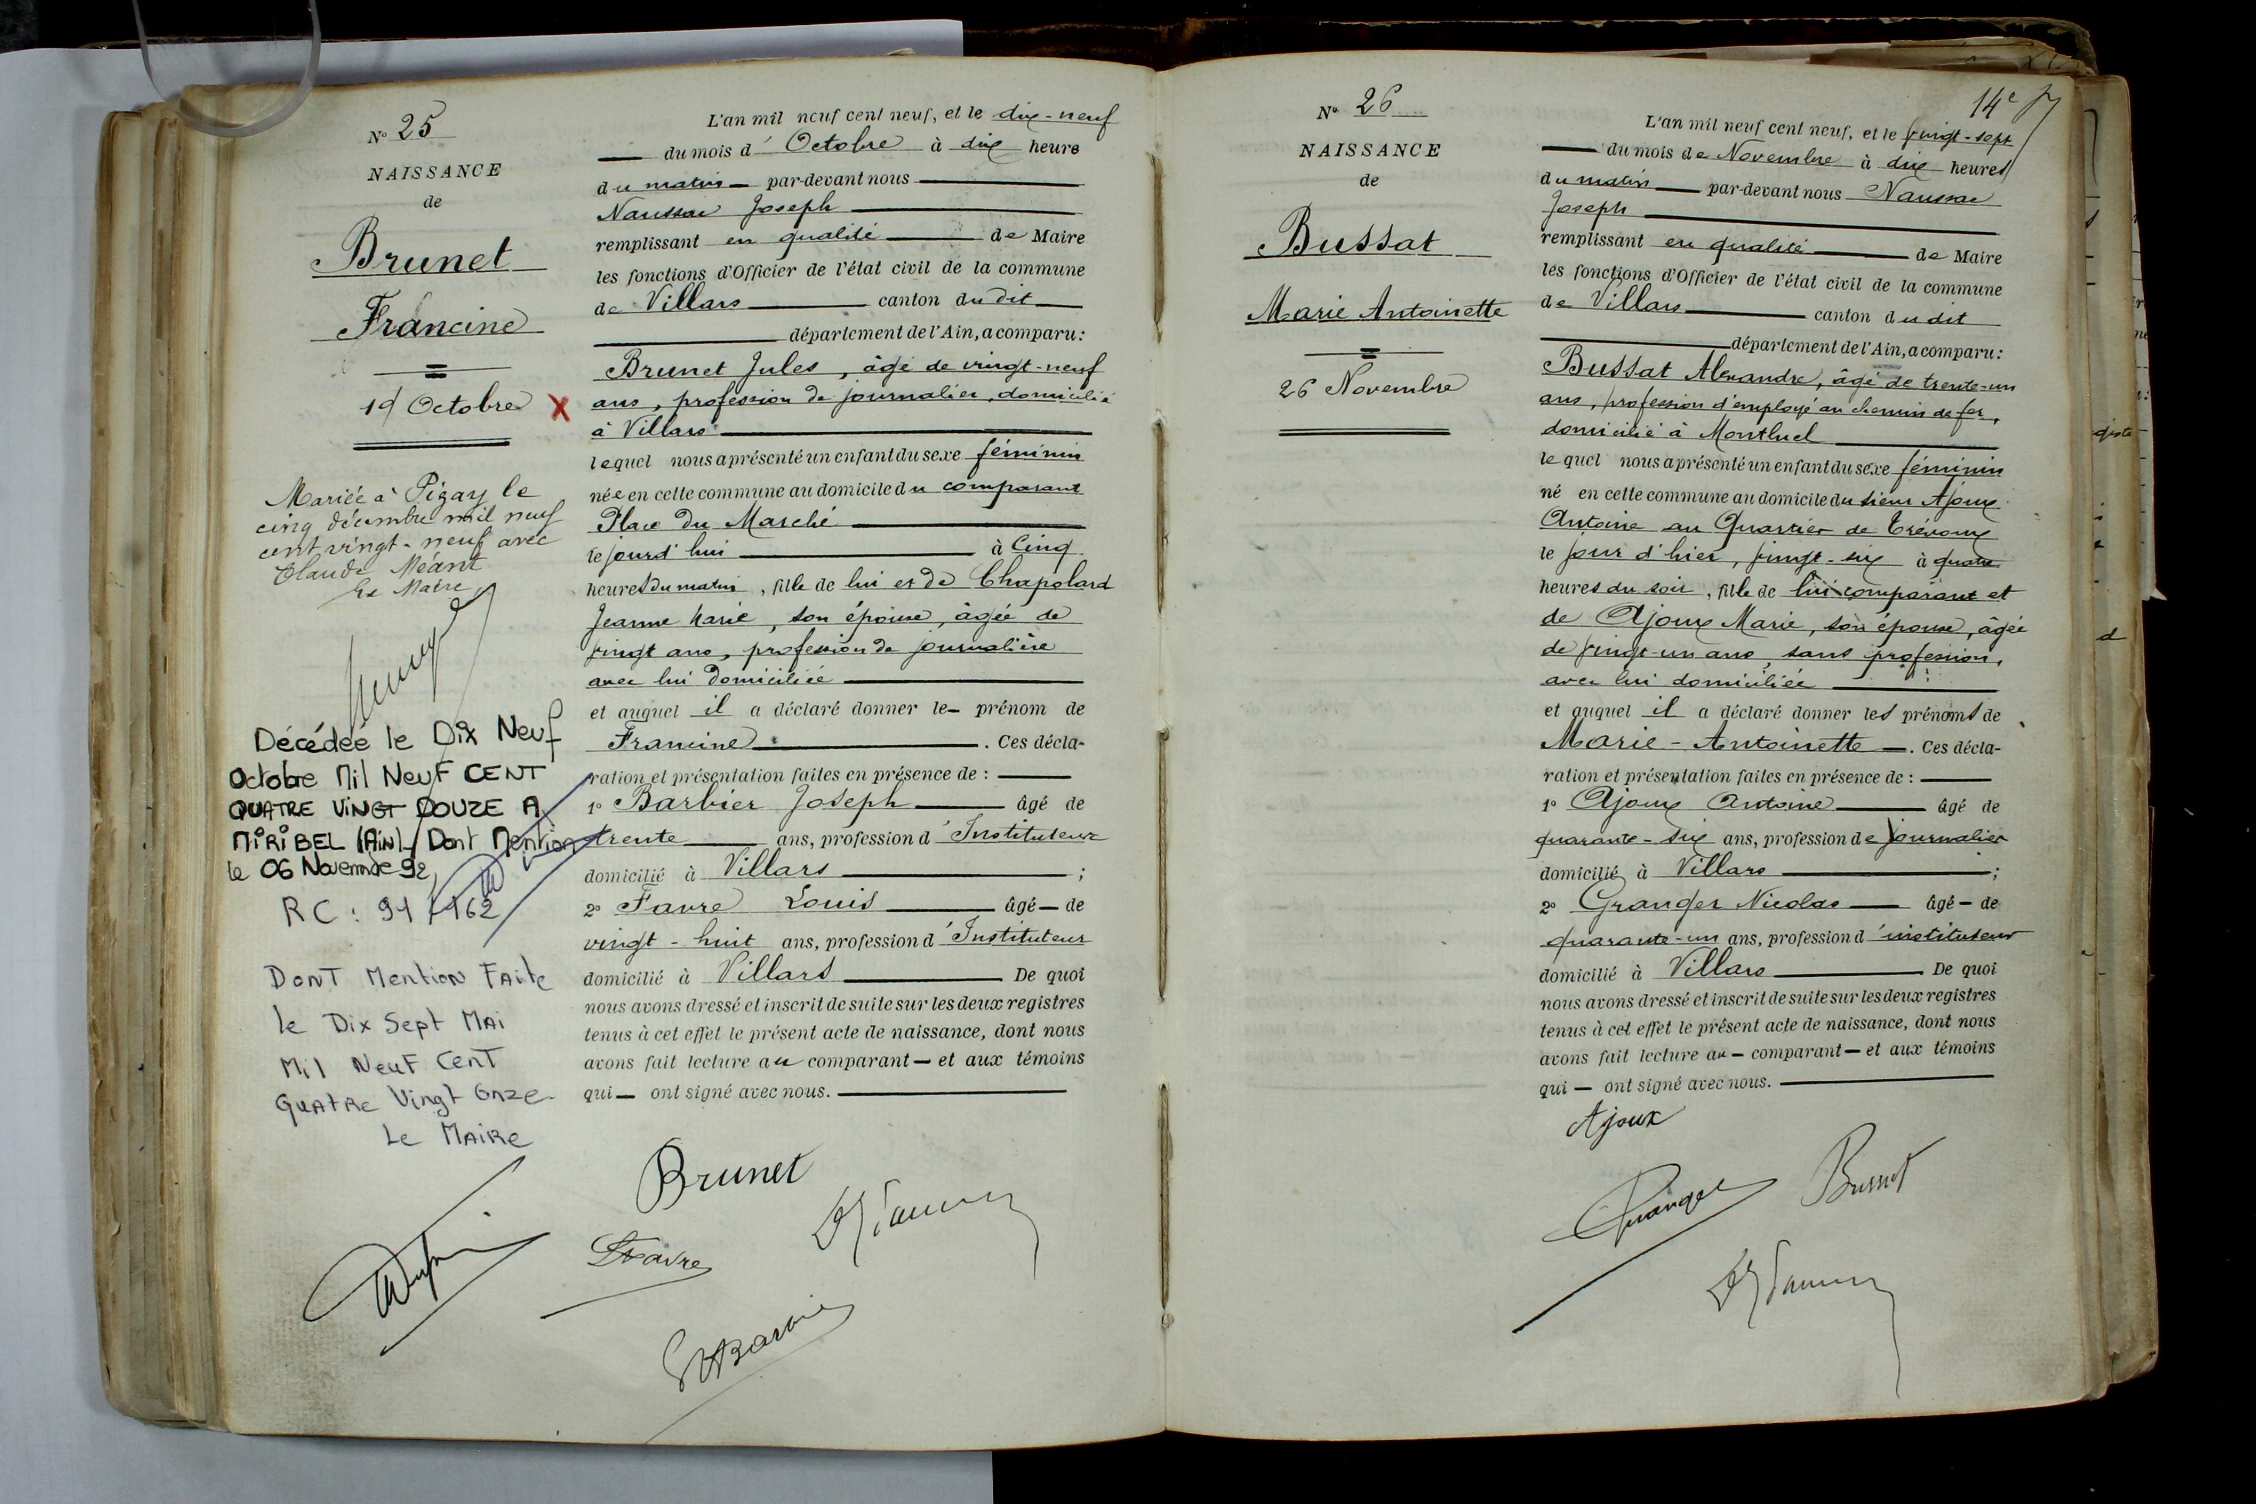 N° 25
NAISSANCE
de
Brunet
Francine
19 Octobre X
Mariée à Pizay le
cinq décembre mil neuf
cent vingt-neuf avec
Claude Méant
Le Maire
Décédée le Dix Neuf
Octobre Mil Neuf CENT
QUATRE VINGT DOUZE A
MIRIBEL (AiN) Dont Mention
le 06 Novembre 92
RC : 91 / 162
DONT Mention Faite
le Dix Sept MAi
Mil Neuf CenT
QuATRe Vingt Onze
Le MAiRe
L'an mil neuf cent neuf, et le dix-neuf
du mois d'Octobre à dix heure
du matin par-devant nous
Naussac Joseph
remplissant en qualité de Maire
les fonctions d'Officier de l'état civil de la commune
de Villars canton du dit
département de l'Ain, a comparu :
Brunet Jules, âgé de vingt-neuf
ans, profession de journalier, domicilié
à Villars
lequel nous a présenté un enfant du sexe féminin
née en cette commune au domicile du comparant
Place du Marché
le jourd'hui à Cinq
heures du matin, fille de lui et de Chapolard
Jeanne Marie, son épouse, âgée de
vingt ans, profession de journalière
avec lui domiciliée
et auquel il a déclaré donner le prénom de
Francine. Ces décla-
ration et présentation faites en présence de :
1° Barbier Joseph âgé de
trente ans, profession d'Instituteur
domicilié à Villars ;
2° Favre Louis âgé de
vingt-huit ans, profession d'Instituteur
domicilié à Villars De quoi
nous avons dressé et inscrit de suite sur les deux registres
tenus à cet effet le présent acte de naissance, dont nous
avons fait lecture au comparant et aux témoins
qui ont signé avec nous.
Brunet
LFavre
Barbier
14e
N° 26
NAISSANCE
de
Bussat
Marie Antoinette
26 Novembre
L'an mil neuf cent neuf, et le vingt-sept
du mois de Novembre à dix heures
du matin par-devant nous Naussac
Joseph
remplissant en qualité de Maire
les fonctions d'Officier de l'état civil de la commune
de Villars canton du dit
département de l'Ain, a comparu :
Bussat Alexandre, âgé de trente-un
ans, profession d'employé au chemin de fer,
domicilié à Montluel
lequel nous a présenté un enfant du sexe féminin
né en cette commune au domicile du sieur Ajoux
Antoine au Quartier de Trévoux
le jour d'hier, vingt-six à quatre
heures du soir, fille de lui comparant et
de Ajoux Marie, son épouse, âgée
de vingt-un ans, sans profession,
avec lui domiciliée
et auquel il a déclaré donner les prénoms de
Marie-Antoinette. Ces décla-
ration et présentation faites en présence de :
1° Ajoux Antoine âgé de
quarante-six ans, profession de journalier
domicilié à Villars ;
2° Granger Nicolas âgé de
quarante-un ans, profession d'instituteur
domicilié à Villars De quoi
nous avons dressé et inscrit de suite sur les deux registres
tenus à cet effet le présent acte de naissance, dont nous
avons fait lecture au comparant et aux témoins
qui ont signé avec nous.
Ajoux
Granger Bussat